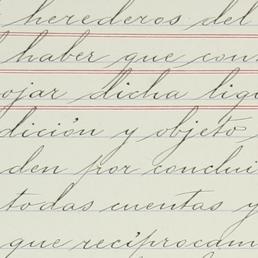 herederos del
haber que con
ojar dicha liqu
dición y objeto
den por conclui
todas cuentas y
que reciprocam